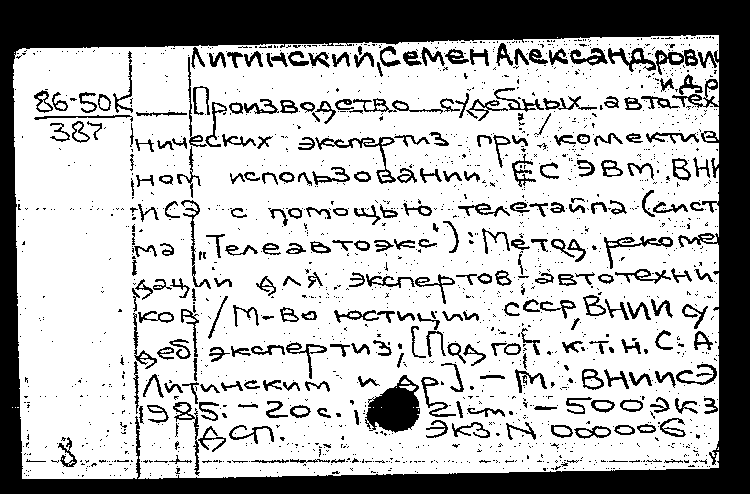 Литинский, Семен Александрови
и др
86-50К
387
Производство судебных автотех
нических экспертиз при коллектив
ном использовании ЕС ЭВМ ВНИ
ИСЭ с помощью телетайпа (сист
ма „Телеавтоэкс"): Метод. рекоме
дации для экспертов-автотехни-
ков / М-во юстиции СССР, ВНИИ су-
деб. экспертиз; [Подгот. к.т.н. С. А.
Литинским и др.]. - М.: ВНИИСЭ
1985. - 20 с.; 21 см. - 500 экз
ДСП. Экз. N 000006.
8